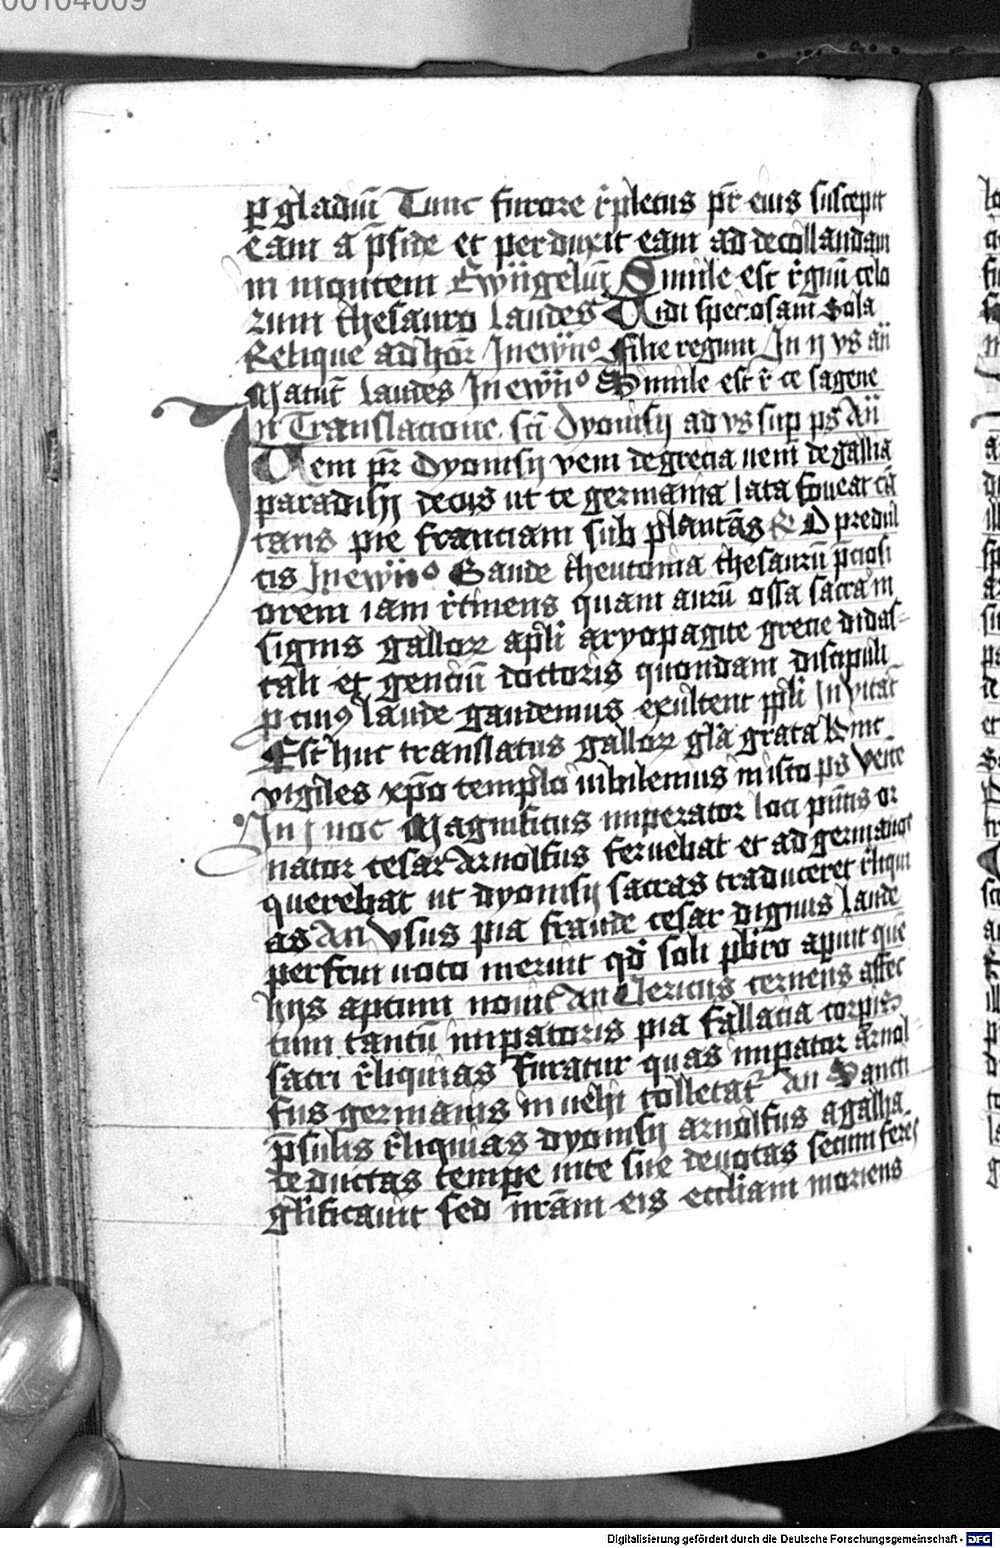 00104009
p gladiū Tunc furore r̄pletus pr̄ eius suscepit
eam a p̄side et perduxit eam ad decollandam
in montem Ewn̄gelūi Simile est r̄gnū celo
rum thesauro laudes Uidi speciosam Sola
Relique ad hōr In ewn̄o Filie regum In ij vs añ
Matut̄ laudes In ewn̄o Simile est r̄ ce sagene
In Translacione sc̄i Dyonisij ad vs sup ps Añ
Uem pr̄ Dyonisij veni de grecia ueni de gallia
paradisij decus ut te germania lata foueat cā
tans pie franciam sub plantās R O predul
cis In ewn̄o Gaude theutonia thesaurū p̄ciosi
orem iam r̄tinens quam aurū ossa sacra in
signis gallor apl̄i aryopagite grecie didas
cali et genciū doctoris quondam discipuli
p cuius laude gaudemus exultent ppl̄i Inuitat̄
Est huc translatus gallor gl̄a grata hinc
vigiles xp̄o templo iubilemus in isto ps Venite
In j noc Magnificus imperator loci p̄ntis or
nator cesar Arnolfus feruebat et ad germanos
querebat ut dyonisij sacras traduceret r̄liqui
as An Vsus pia fraude cesar dignus laude
perfrui uoto meruit qd̄ soli pb̄ro aperuit quē
hijs aptum nouit An Clericus cernens affec
tum tantū imp̄atoris pia fallacia corpis
sacri r̄liquias furatur quas imp̄ator arnol
fus germanis in uehi tolletat̄ An Sancti
p̄sulis r̄liquias dyonisij arnolfus a gallia
te ductas tempe uite sue deuotas secum feres
gl̄ificauit sed nr̄am eis eccl̄iam moriens
Digitalisierung gefördert durch die Deutsche Forschungsgemeinschaft - DFG